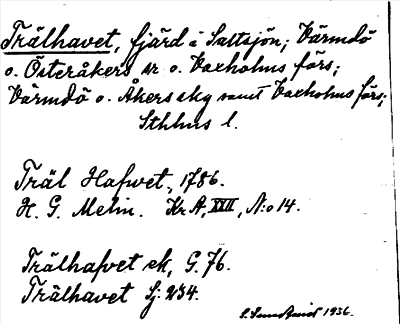 Trälhavet, fjärd i Saltsjön; Värmdö
o. Österåkers sr o. Vaxholms förs;
Värmdö o. Åkers skg samt Vaxholms förs;
Sthlms l.
Träl Hafwet, 1786.
H. G. Melin. Kr A, XXII, N:o 14.
Trälhafvet ek, G. 76.
Trälhavet Sj. 234.
1936.